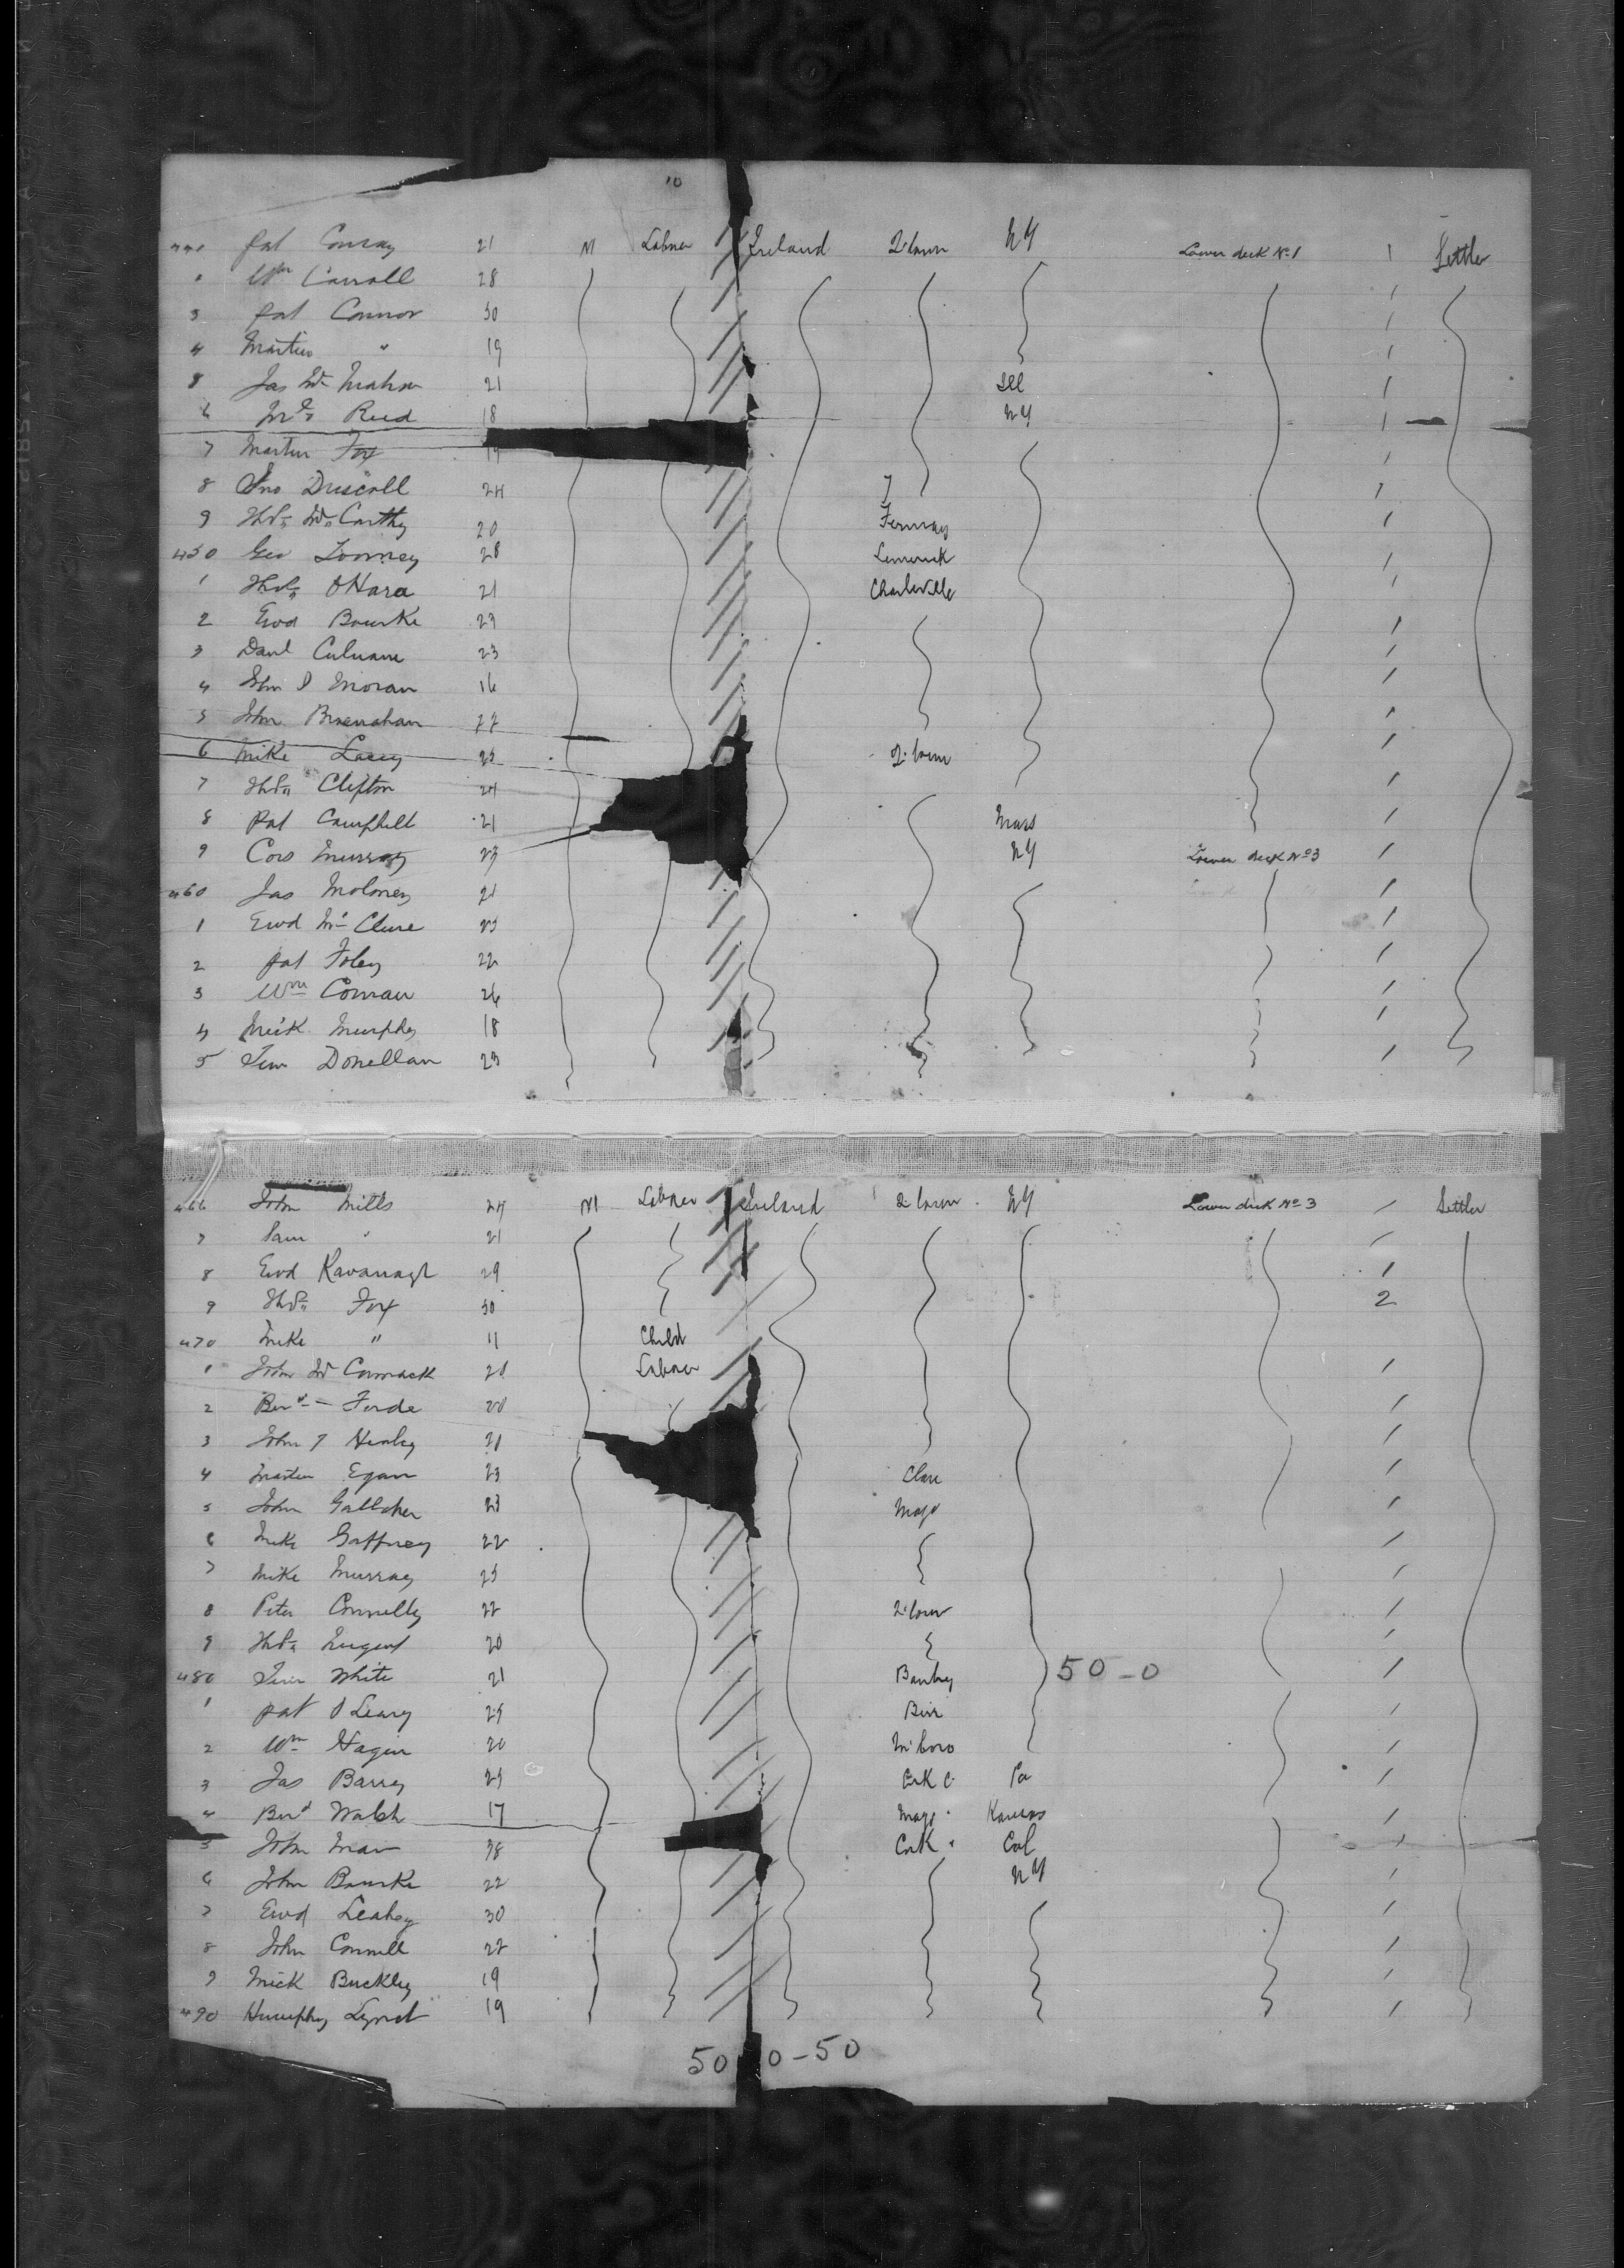 10
441 Pat Conway 21 M Labrer Ireland Q. town NY Lower deck No 1 1 Settler
2 Wm Carroll 28 1
3 Pat Connor 30 1
4 Martin " 19 1
5 Jas Mc Mahon 21 Ill 1
6 Reid 18 NY 1
7 Martin Fox 19 1
8 Jno Driscoll 24 1
9 Thos Mc Carthy 20 Fermoy 1
450 Geo Toomey 28 Limerick 1
1 Thos O'Hara 21 Charleville 1
2 Ewd Bourke 23 1
3 Danl Culnane 23 1
4 John J Moran 16 1
5 John Bresnahan 22 1
6 Mike Lacey 25 Q. town 1
7 Thos Clifton 24 1
8 Pat Campbell 21 Mass 1
9 Murray 23 NY Lower deck No 3 1
460 Jas Moloney 21 1
1 Ewd Mc Clure 23 1
2 Pat Foley 22 1
3 Wm Coman 26 1
4 Mick Murphy 18 1
5 Tim Donellan 23 1
466 John Mills 24 M Labrer Ireland Q. town NY Lower deck No 3 1 Settler
7 " 21 1
8 Ewd Kavanagh 29 1
9 Thos Fox 30 2
470 Mike " 11 Child
1 John Mc Cormack 20 Labrer 1
2 Bernd Forde 20 1
3 John J Healey 20 1
4 Martin Egan 23 Clare 1
5 John Gallaher 23 Mayo 1
6 Mike Gaffney 22 1
7 Mike Murray 25 1
8 Peter Connelly 22 Q. town 1
9 Thos Nugent 20 1
480 Tim White 21 Bantry 50-0 1
1 Pat O Leary 25 Birr 1
2 Wm Hagin 20 M'boro 1
3 Jas Barry 25 Cork C. Pa 1
4 Bernd Walsh 17 Mayo Kansas 1
5 John 38 Cork " Cal 1
6 John Bourke 22 NY 1
7 Ewd Leahey 30 1
8 John Connell 22 1
9 Mick Buckley 19 1
490 Humphy Lynch 19 1
50 0-50